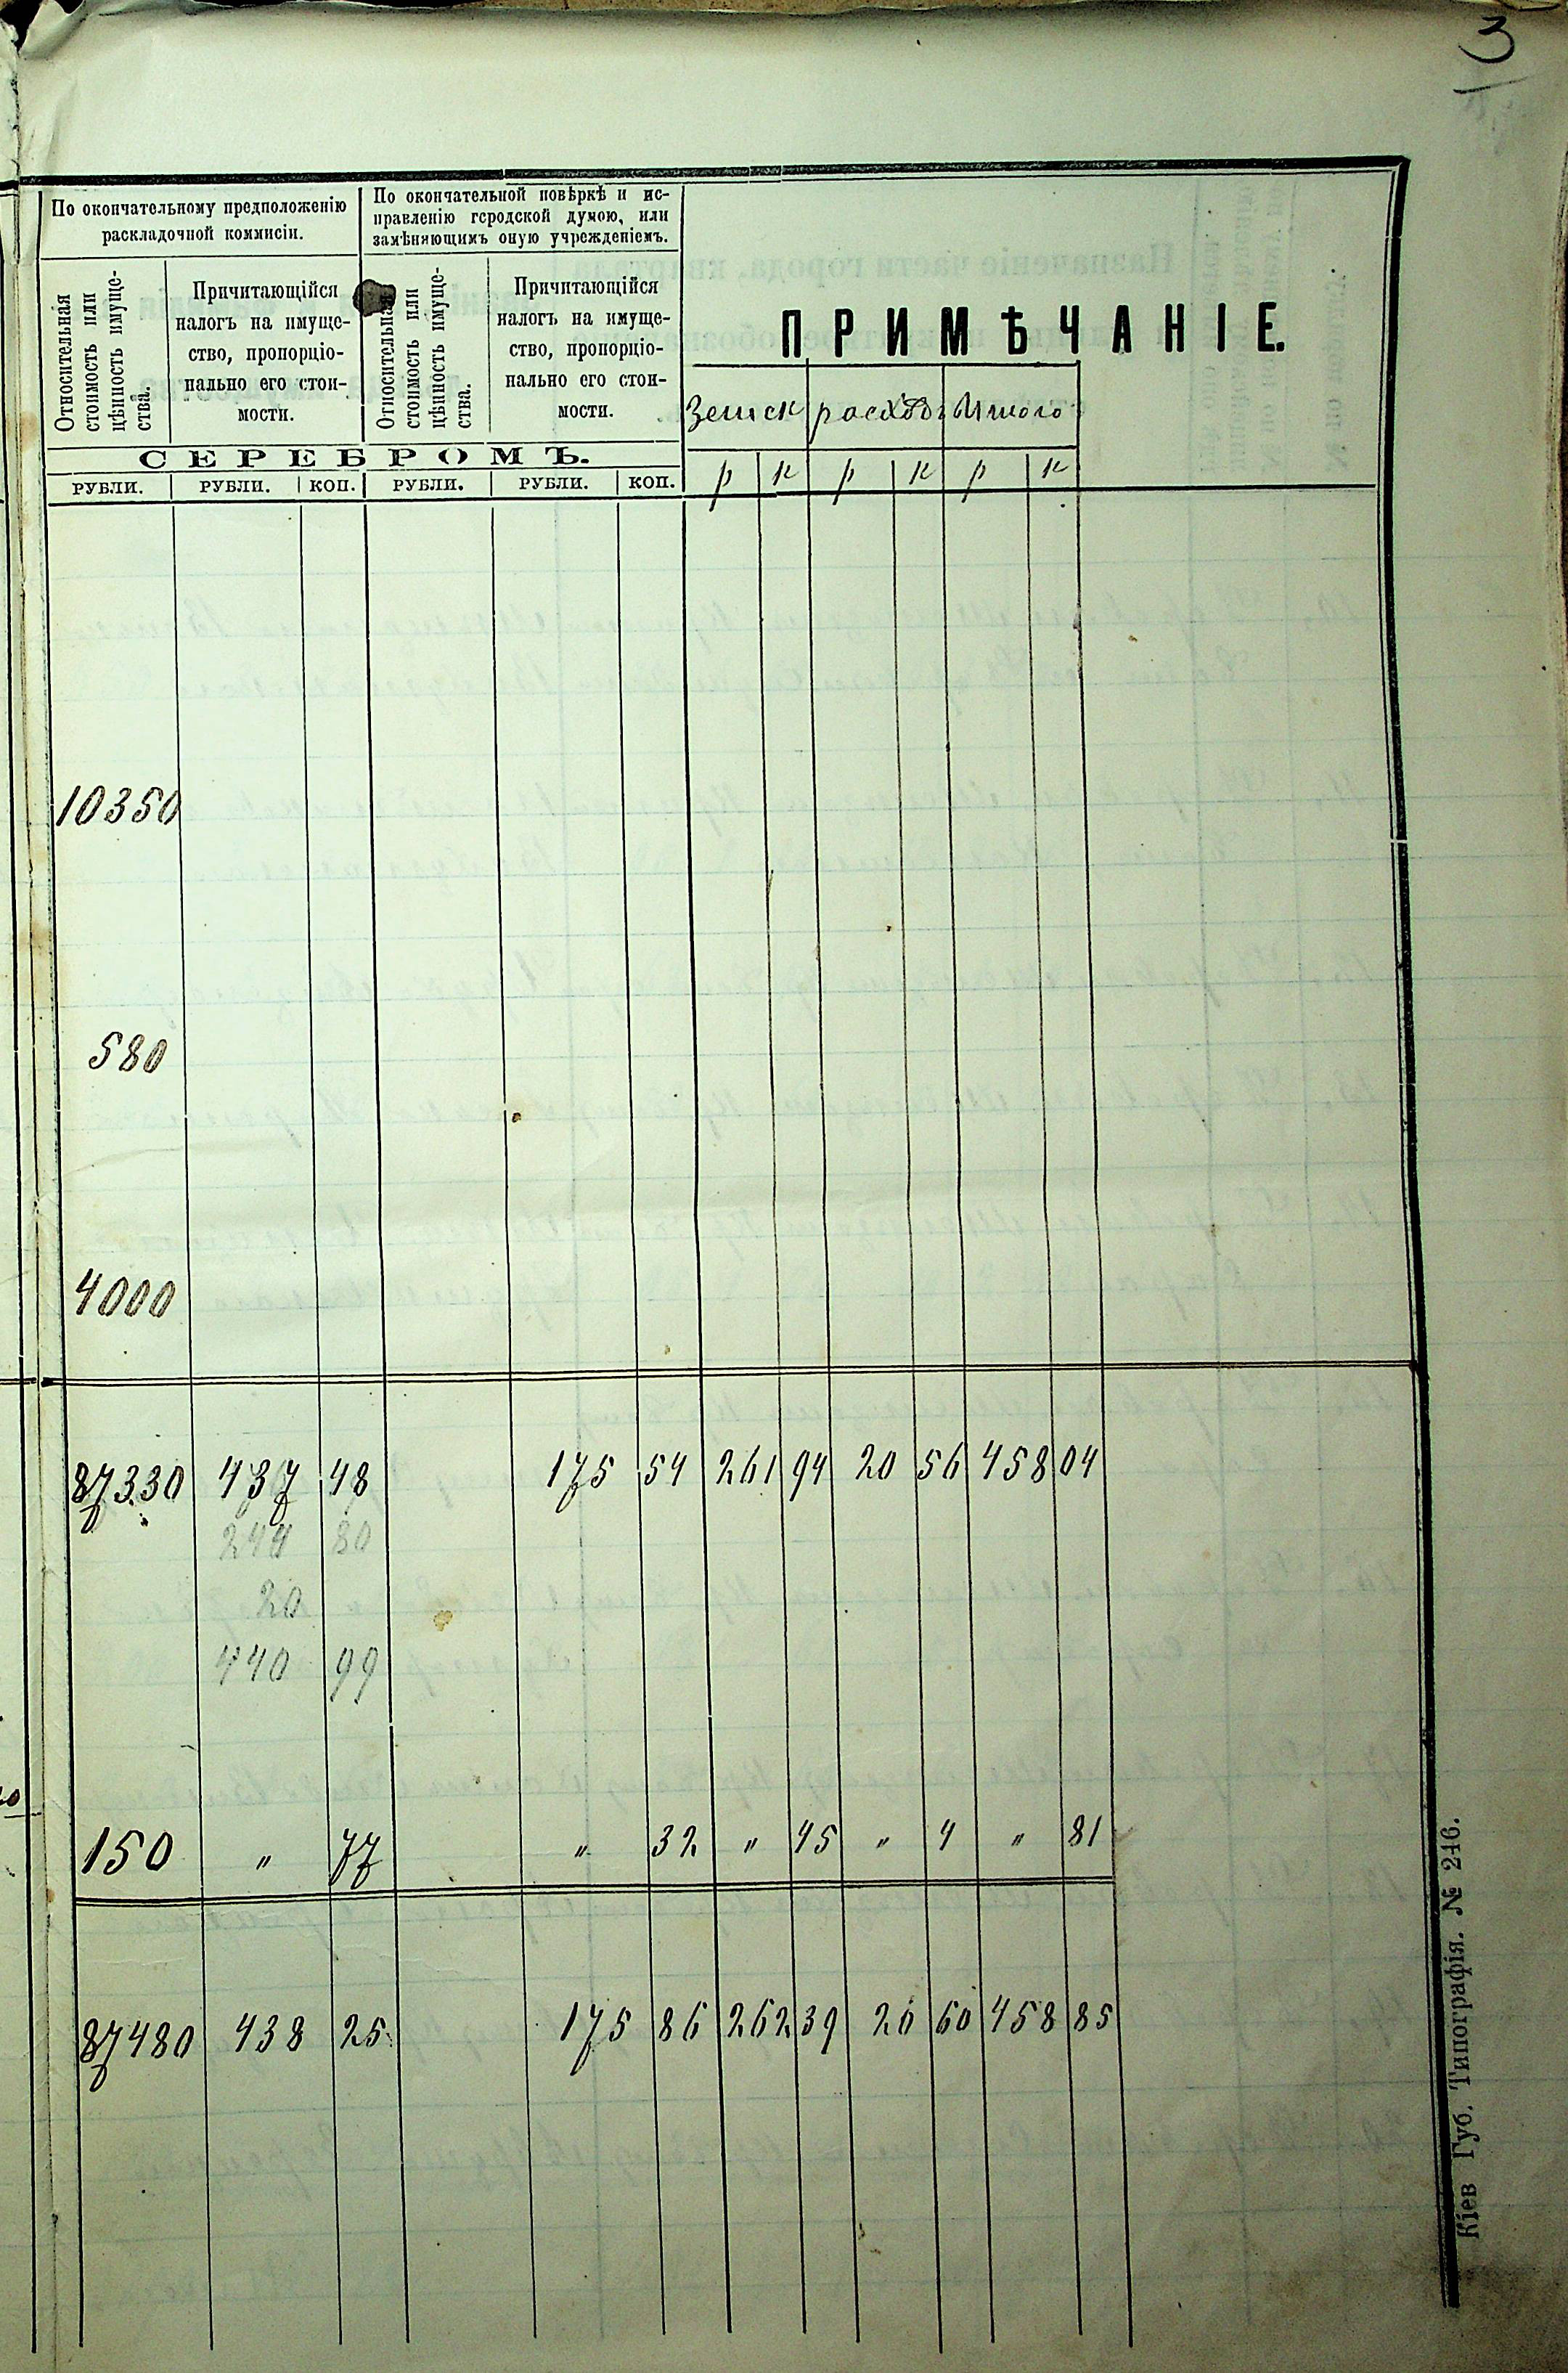 3
По окончательному предположенію
раскладочной коммисіи.
По окончательной повѣркѣ и ис-
правленію городской думою, или
замѣняющимъ оную учрежденіемъ.
Относительная
стоимость или
цѣнность имуще-
ства.
Причитающійся
налогъ на имуще-
ство, пропорціо-
нально его стои-
мости.
Относительная
стоимость или
цѣнность имуще-
ства.
Причитающійся
налогъ на имуще-
ство, пропорціо-
нально его стои-
мости.
ПРИМѢЧАНІЕ.
Земск расходъ Итого
СЕРЕБРОМЪ.
РУБЛИ. РУБЛИ. КОП. РУБЛИ. РУБЛИ. КОП. р к р к р к
10350
580
4000
87330 437 48 175 54 261 94 20 56 458 04
244 80
20
440 99
150 " 77 " 32 " 45 " 4 " 81
87480 438 25 175 86 262 39 20 60 458 85
Кіев Губ. Типографія. № 246.